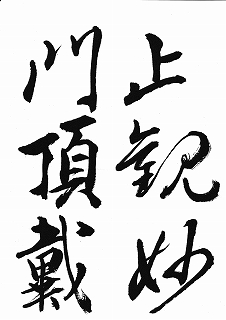 上觀妙
門頂戴